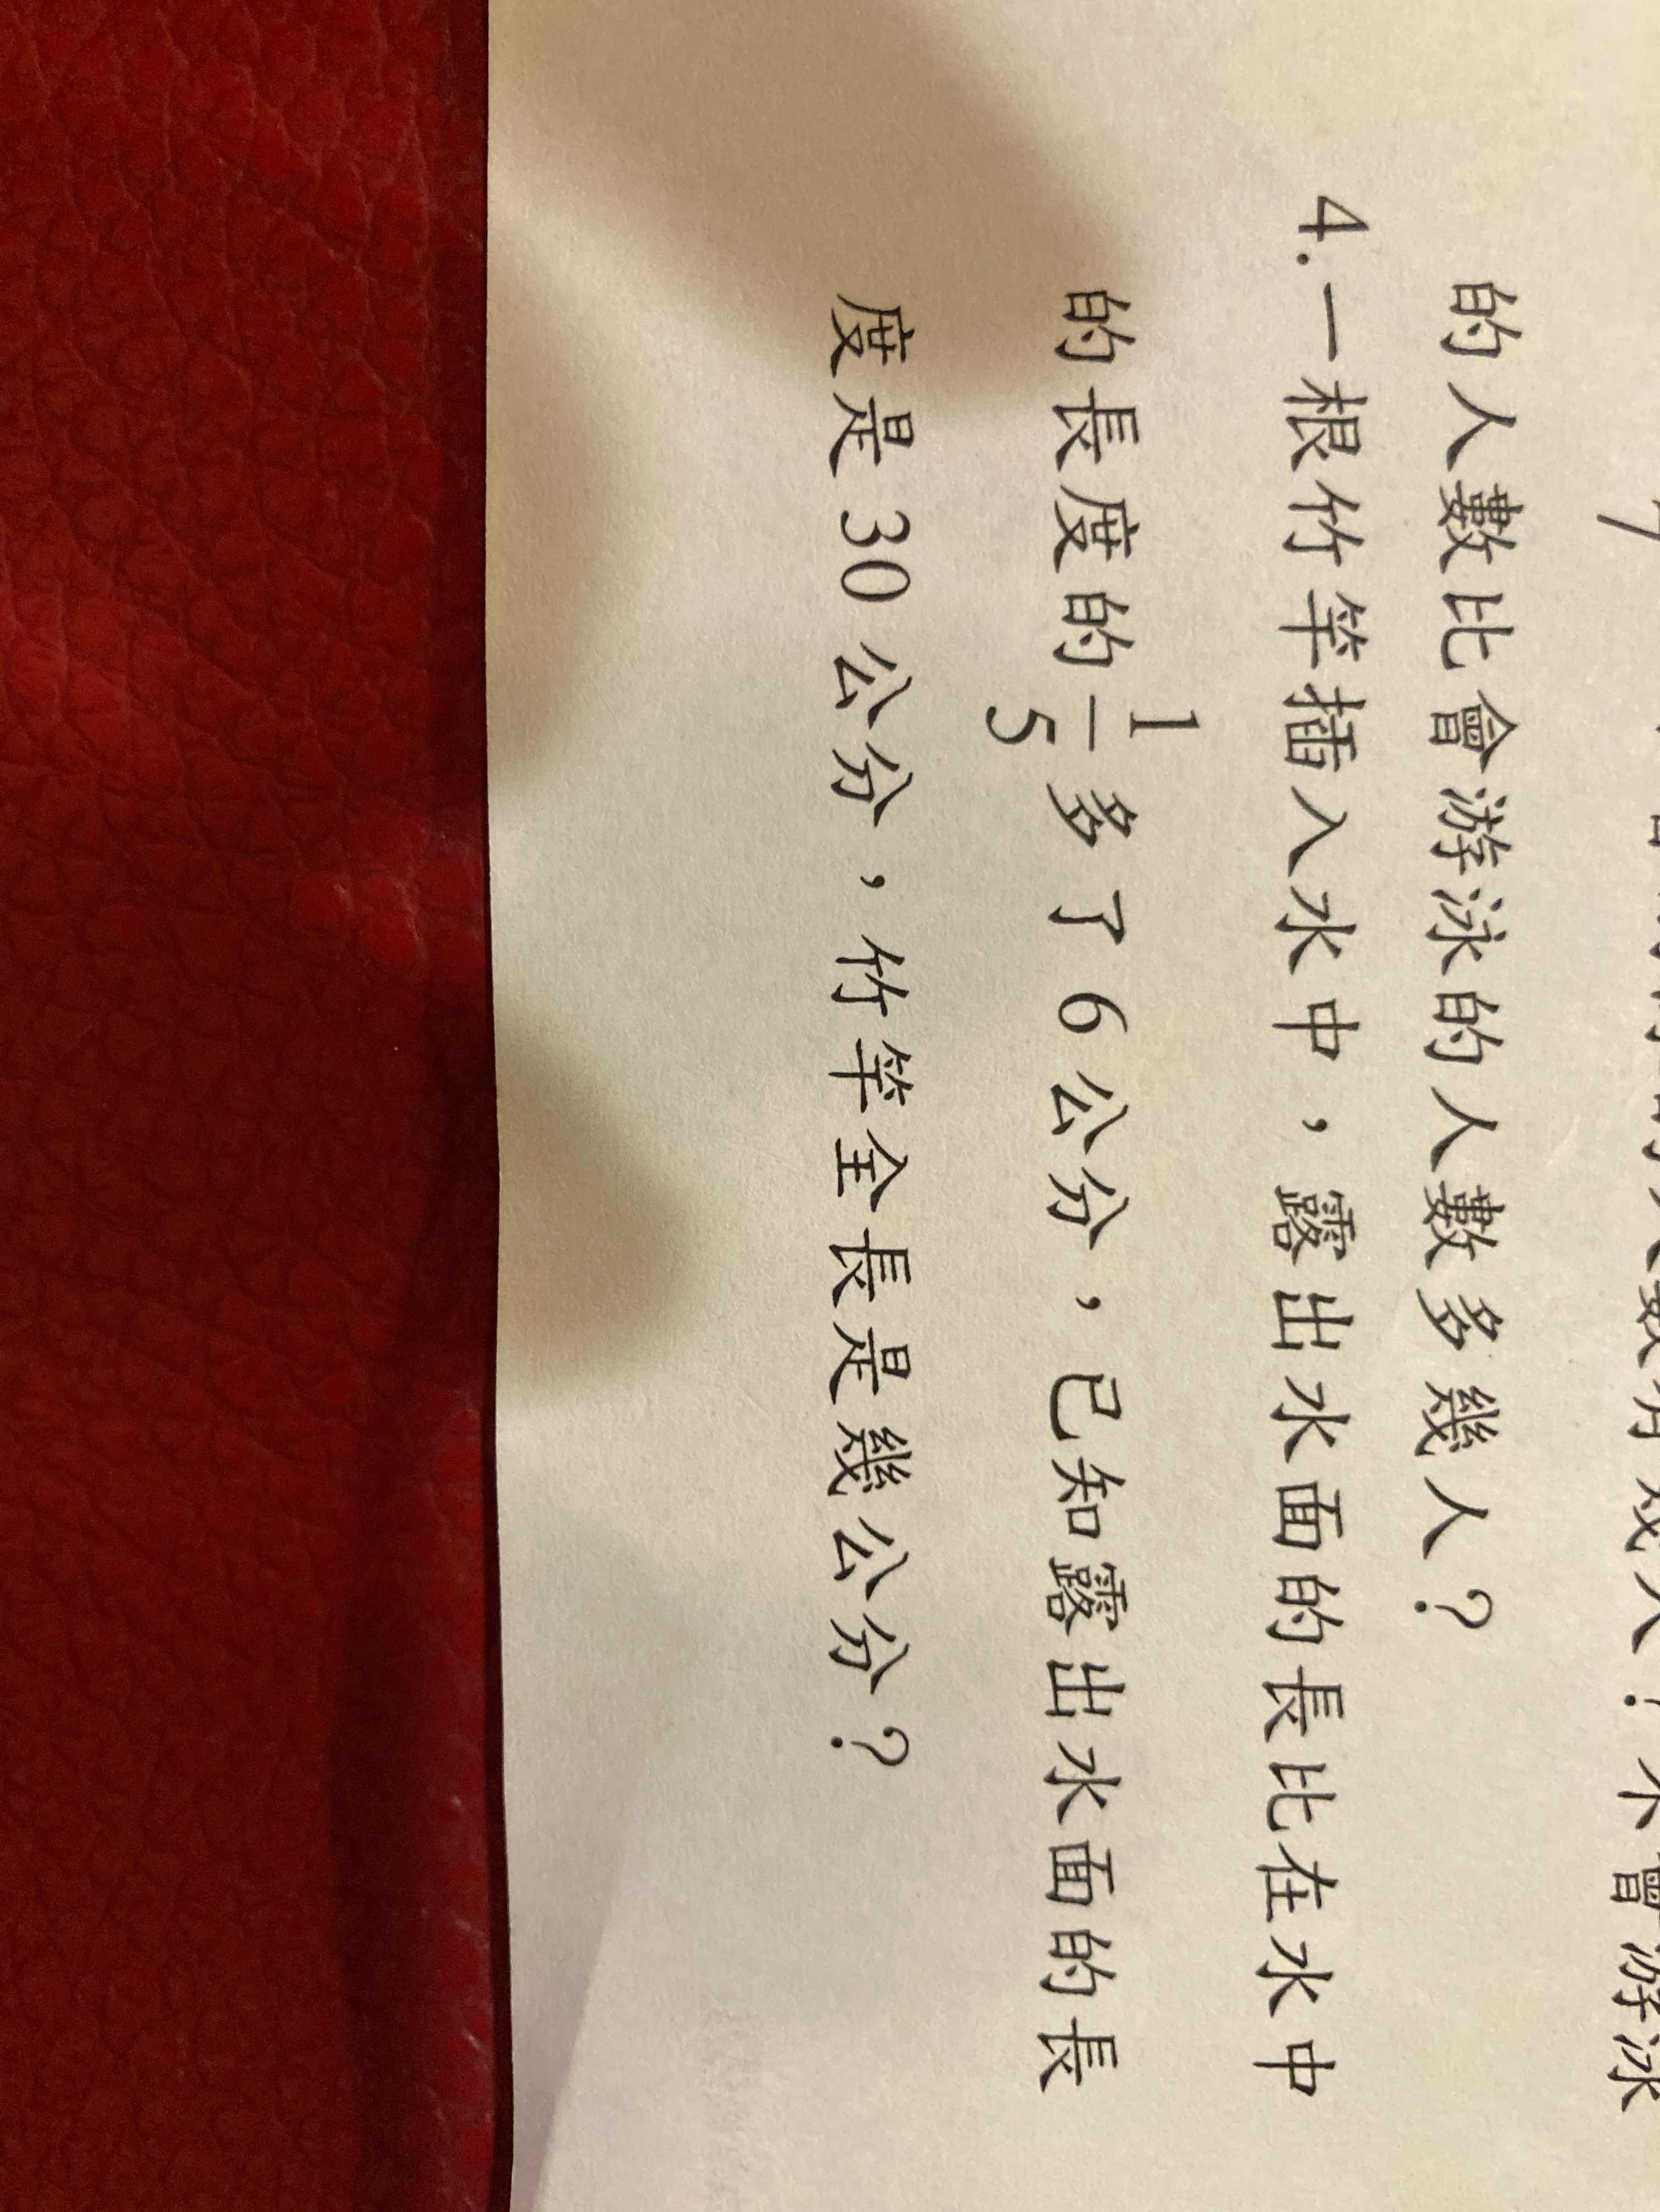 的人數比會游泳的人數多幾人？
4.一根竹竿插入水中，露出水面的長比在水中
的長度的1/5多了6公分，已知露出水面的長
度是30公分，竹竿全長是幾公分？